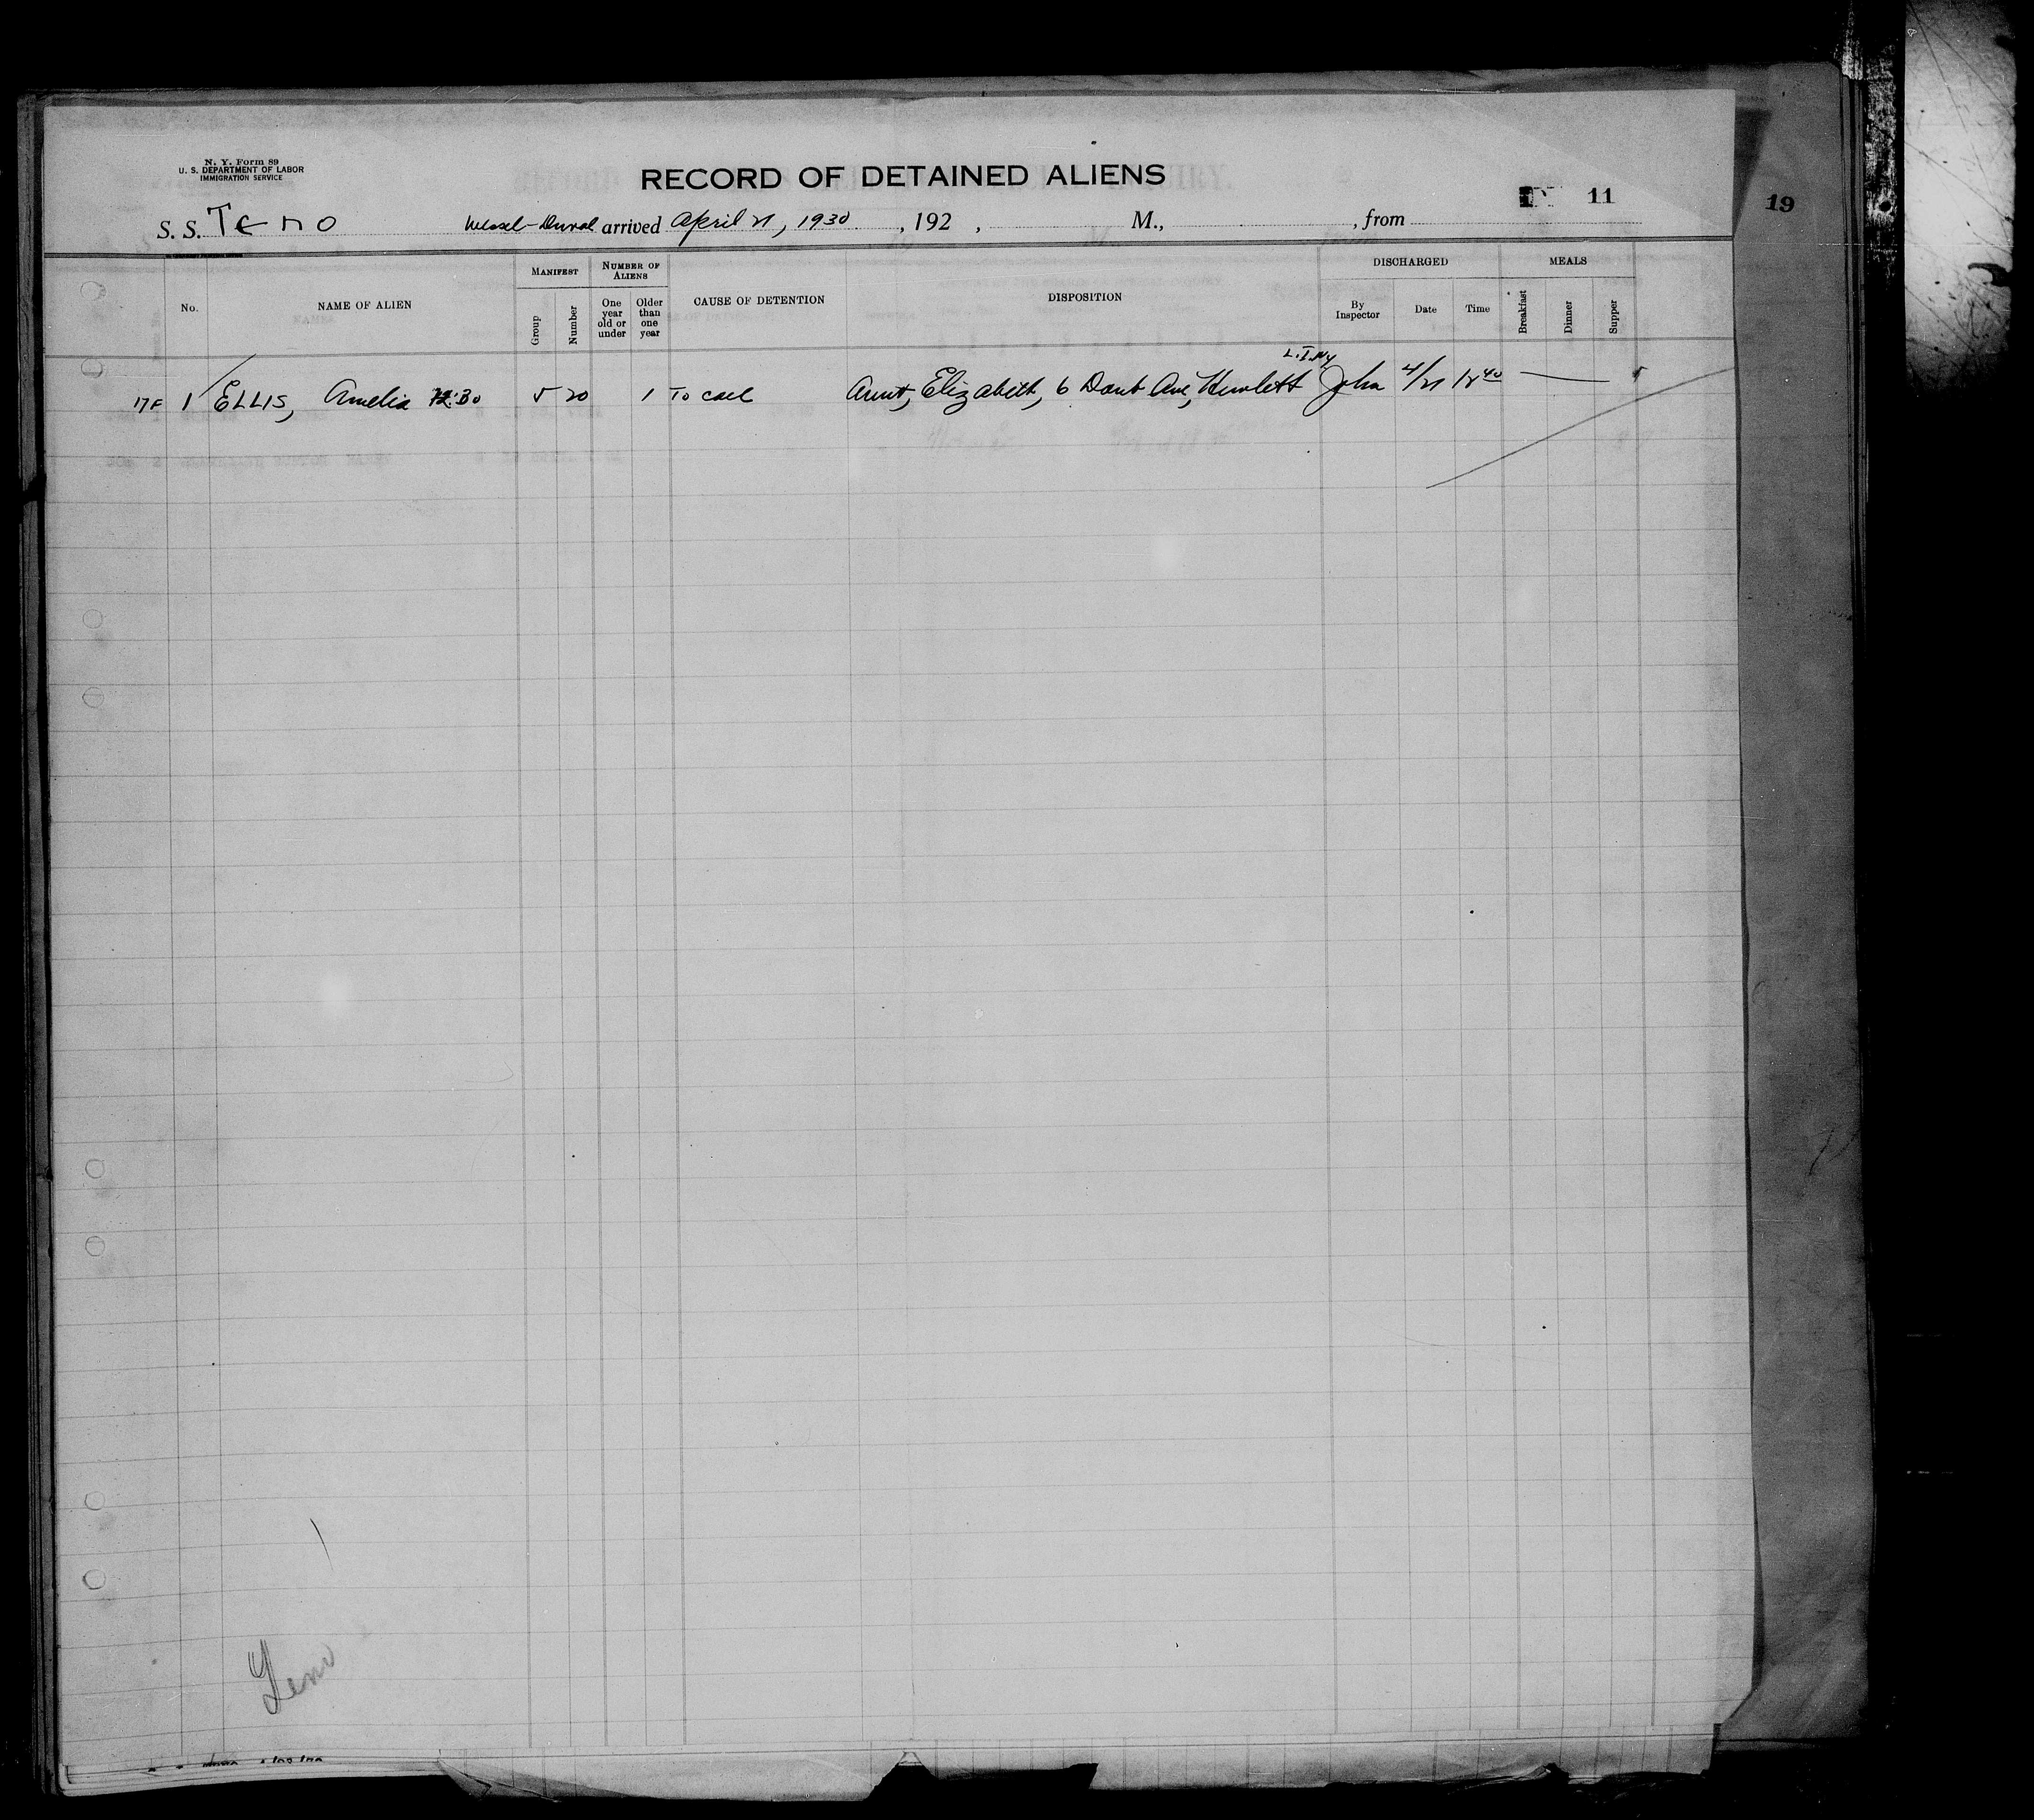 N. Y. Form 89
U. S. DEPARTMENT OF LABOR
IMMIGRATION SERVICE
RECORD OF DETAINED ALIENS
11
19
S. S. Teno Wessel-Duval arrived April 21, 1930, 192 , M., , from
No.
NAME OF ALIEN
MANIFEST
Group
Number
NUMBER OF ALIENS
One year old or under
Older than one year
CAUSE OF DETENTION
DISPOSITION
DISCHARGED
By Inspector
Date
Time
MEALS
Breakfast
Dinner
Supper
L.I. NY
17F 1 ELLIS, Amelia 5 20 1 To call Aunt, Elizabeth, 6 Ave, Hewlett John 4/21 12 40
Teno